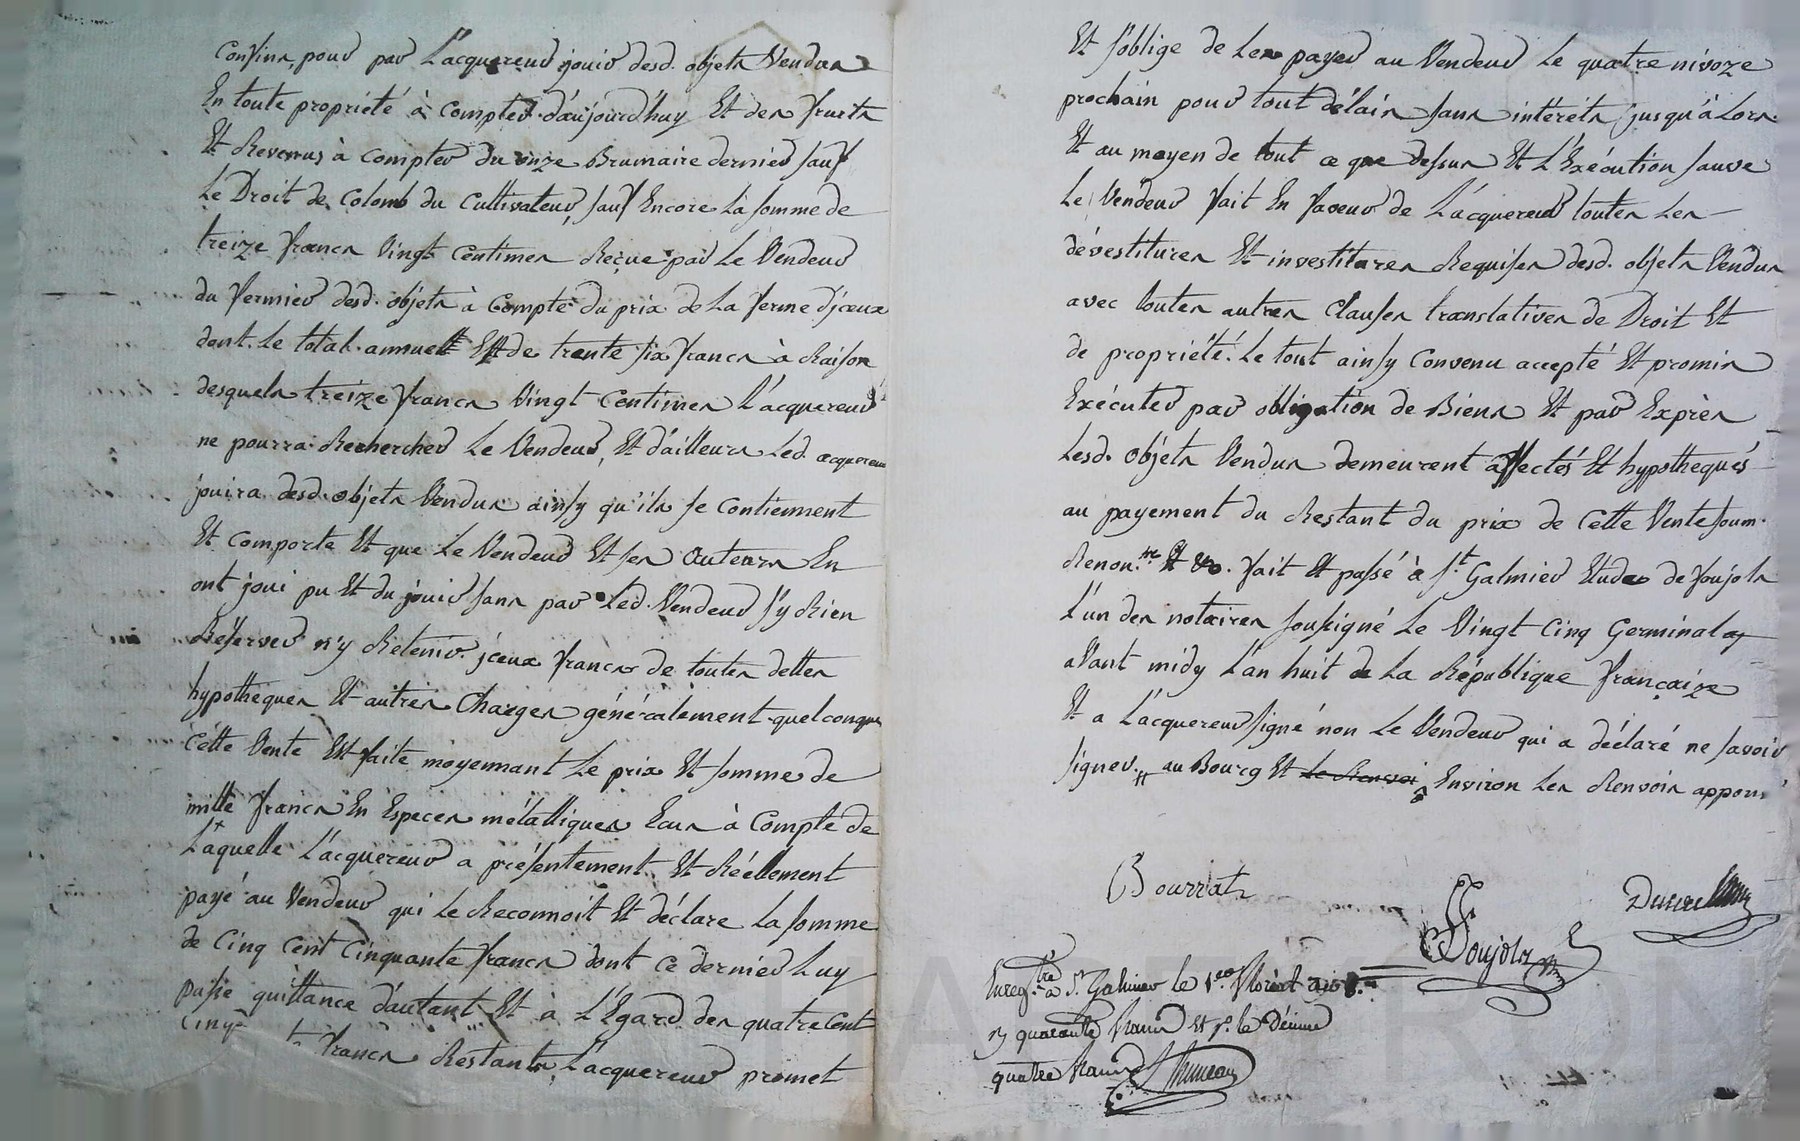 Confins, pour par L'acquereur jouir desd. objets Vendus
En toute proprieté à compter d'aujourd'huy Et des fruits
Et Revenus à compter du onze Brumaire dernier sauf
Le Droit de Colomb du Cultivateur, sauf Encore La somme de
treize francs Vingt Centimes Reçue par Le Vendeur
du fermier desd. objets à Compte du prix de La ferme d'jceux
dont Le total annuell Est de trente six francs à Raison
desquels treize francs Vingt Centimes L'acquereur
ne pourra Rechercher Le Vendeur, Et d'ailleurs Led. acquereur
jouira desd. objets Vendus ainsy qu'ils se Contiennent
Et comporte Et que Le Vendeur Et ses auteurs En
ont joui pu Et du jouir sans par Led. Vendeur s'y Rien
Réserver n'y Retenir. jceux francs de toutes dettes
hypotheques Et autres Charges généralement quelconque
Cette Vente Est faite moyennant Le prix Et somme de
mille francs En Especes métalliques Eccus à Compte de
Laquelle L'acquereur a présentement Et Réellement
payé au Vendeur qui Le Reconnoit Et déclare La somme
de Cinq Cent Cinquante francs dont Ce dernier Luy
passe quittance d'autant Et à L'Egard des quatre Cent
Cinq francs Restants, L'acquereur promet
Et s'oblige de Les payer au Vendeur Le quatre nivoze
prochain pour tout délais sans intérêts jusqu'à Lors.
Et au moyen de tout ce que dessus Et L'Exécution sauve
Le Vendeur fait En faveur de L'acquereur toutes Les
dévestitures Et investitures Requises desd. objets Vendus
avec toutes autres Clauses translatives de Droit Et
de propriété. Le tout ainsy Convenu accepté Et promis
Exécuter par obligation de Biens Et par Exprès
Lesd. objets Vendus demeurent affectés Et hypothequés
au payement du Restant du prix de Cette Vente soum.
Renon.on Et &c. fait Et passé à St. Galmier Etude de foujols
L'un des notaires soussigné Le Vingt Cinq Germinal
avant midy L'an huit de La République française
Et a L'acquereur signé non Le Vendeur qui a déclaré ne savoir
signer. au Bourg Et Le Renvoi Environ Les Renvois
Bourrat
Foujols
Enreg.tré à St. Galmier le 1.er floréal an 8.
quarante francs Et p.r le Décime
quatre francs